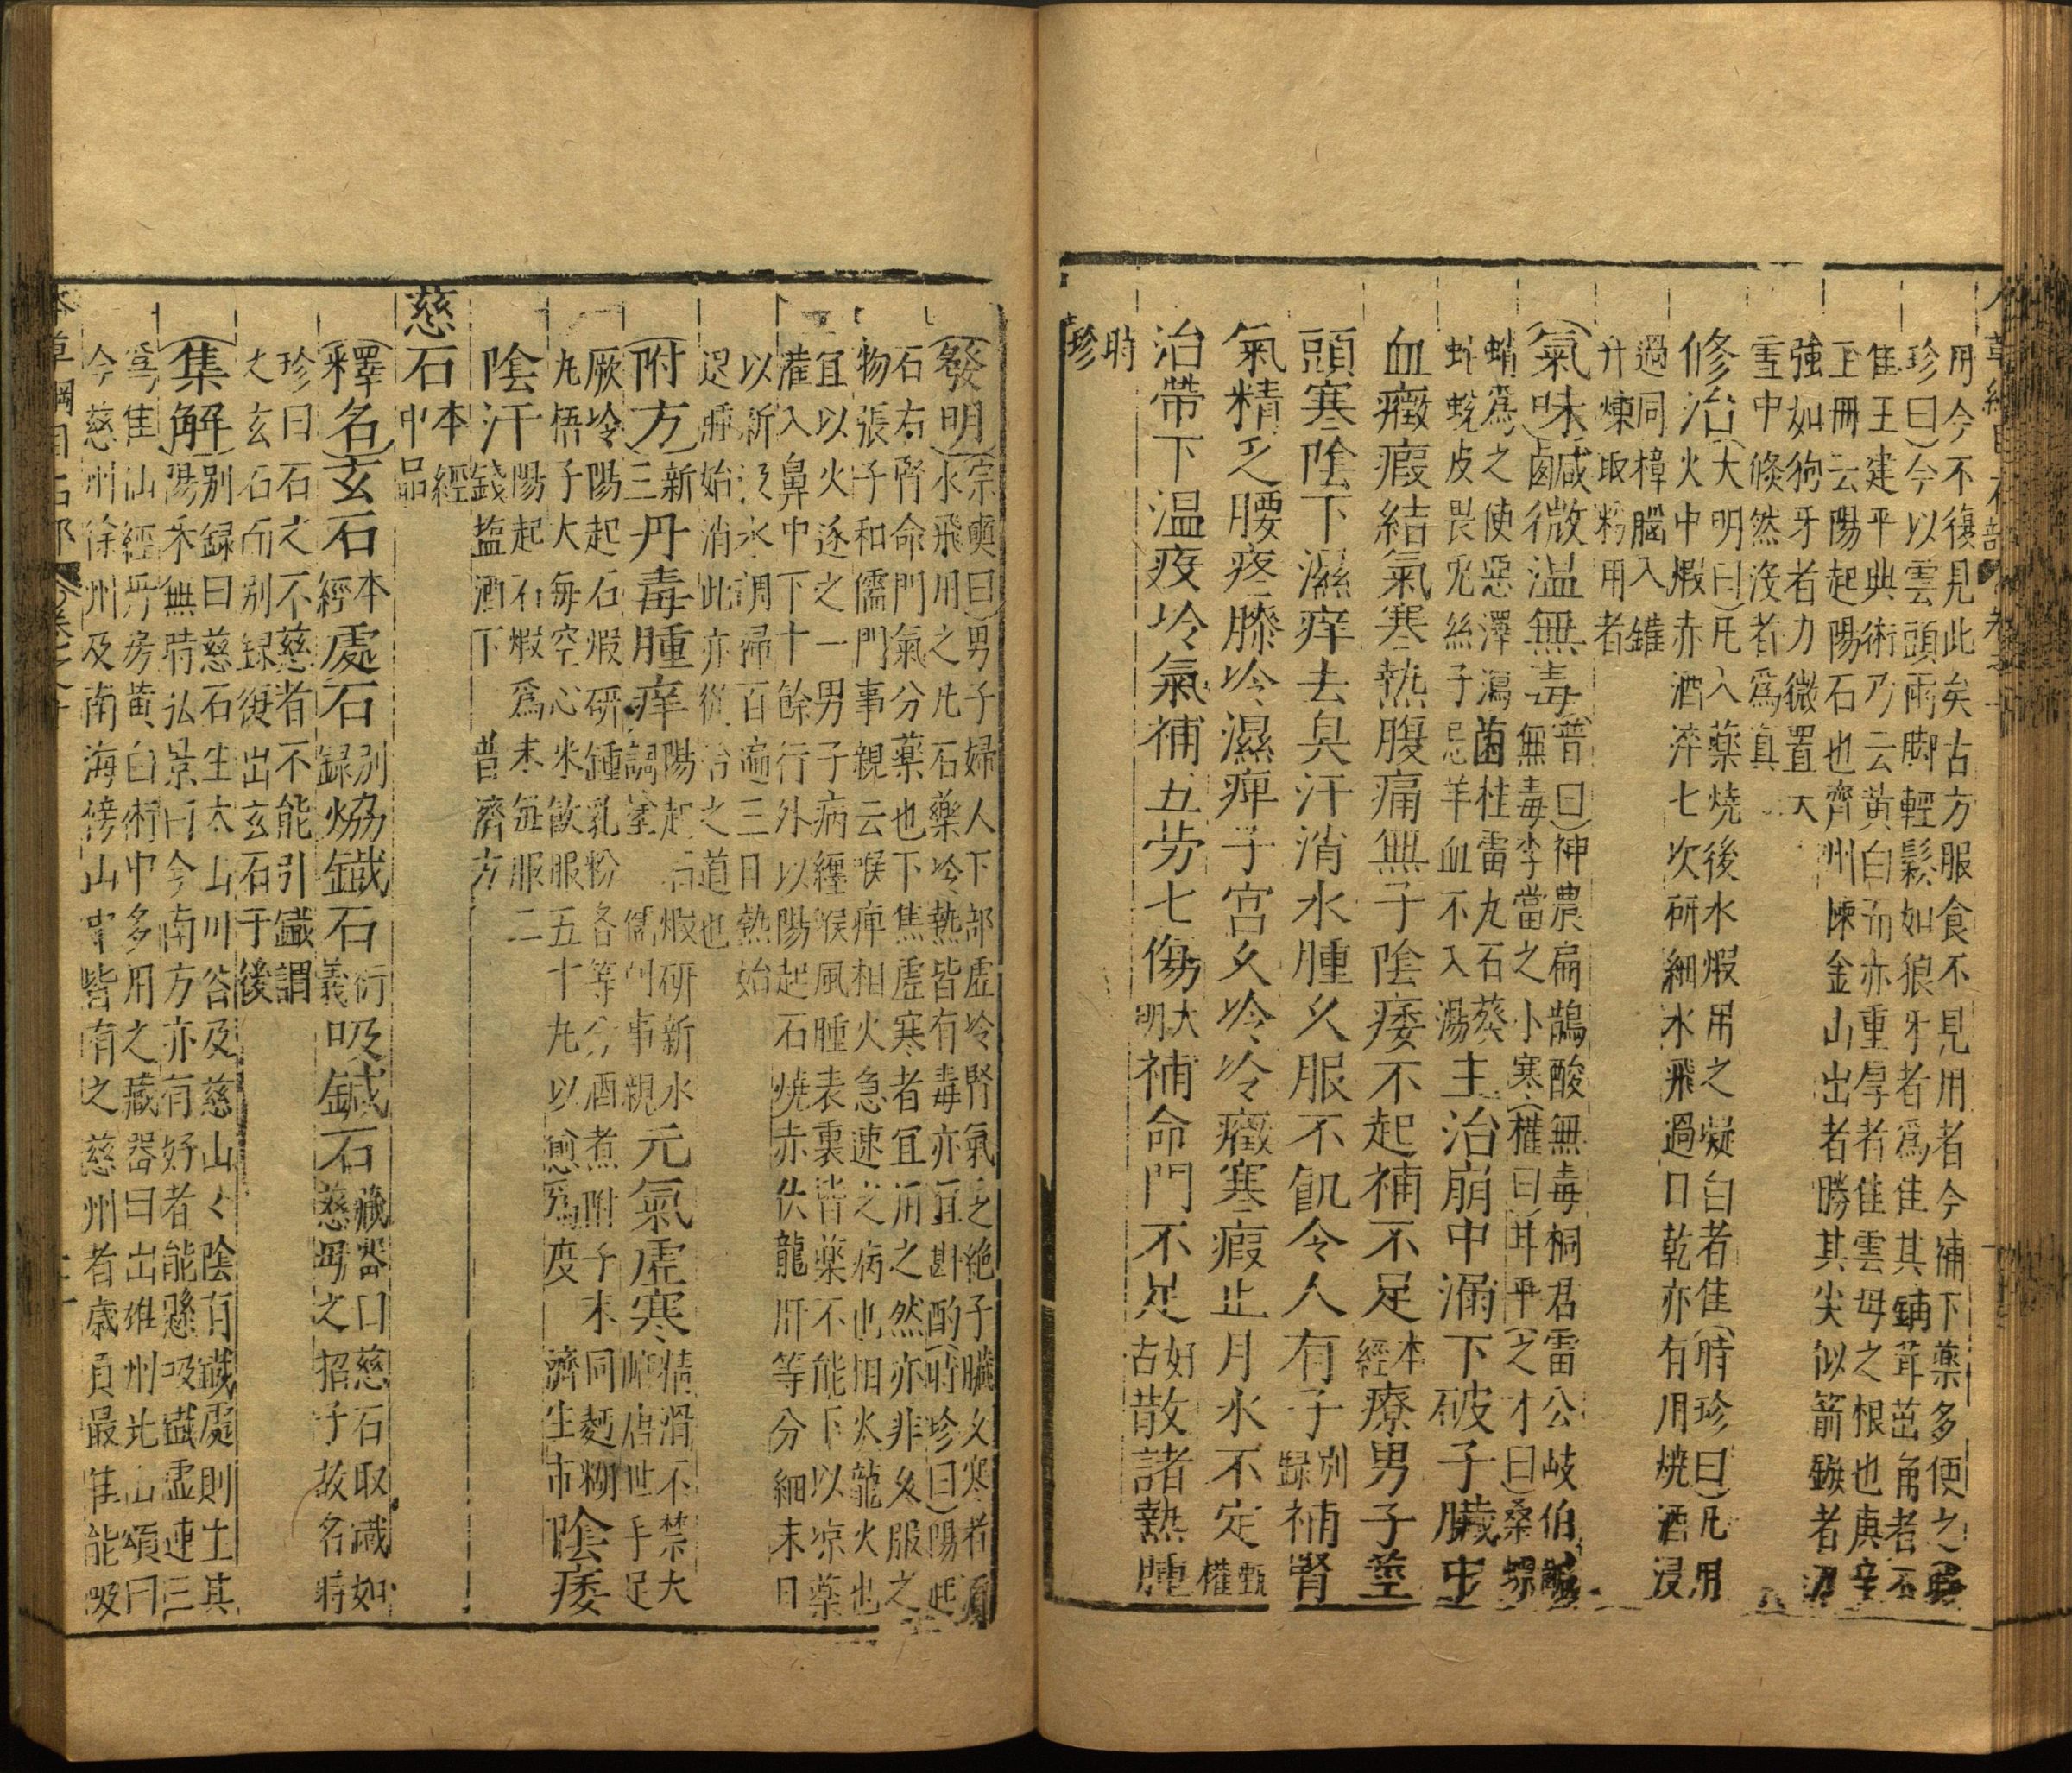 用今不復見此矣古方服食不見用者今補下藥多便之時
珍曰今以雲頭雨脚輕鬆如狼牙者爲佳其鋪茸茁角者不
佳王建平典術乃云黃白而赤重厚者佳雲母之根也庚辛
玉冊云陽起陽石也齊州揀金山出者勝其尖似箭鏃者力
強如狗牙者力微置大
雪中倏然沒者爲真
修治大明曰凡入藥燒後水煅用之凝白者佳時珍曰凡用
火中煅赤酒淬七次研細水飛過日乾亦有用燒酒浸
過同樟腦入鑵
升煉取粉用者
氣味鹹微溫無毒普曰神農扁鵲酸無毒桐君雷公岐伯鹹
無毒李當之小寒權曰甘平之才曰桑螵
蛸爲之使惡澤瀉菌桂雷丸石葵
蛇蛻皮畏兔絲子忌羊血不入湯主治崩中漏下破子臟中
血癥瘕結氣寒熱腹痛無子陰痿不起補不足本經療男子莖
頭寒陰下濕痒去臭汗消水腫久服不飢令人有子別録補腎
氣精乏腰疼膝冷濕痺子宮久冷冷癥寒瘕止月水不定甄權
治帶下温疫冷氣補五劳七傷大明補命門不足好古散諸熱腫
時珍
發明宗奭曰男子婦人下部虛冷腎氣乏絶子臟久寒者須
水飛用之凡石藥冷熱皆有毒亦宜斟酌時珍曰陽起
石右腎命門氣分藥也下焦虛寒者宜用之然亦非久服之
物張子和儒門事親云喉痺相火急速之病也相火龍火也
宜以火逐之一男子病纏喉風腫表裏皆藥不能下以凉藥
灌入鼻中下十餘行外以陽起石燒赤伏龍肝等分細末日
以新汲水調掃百遍三日熱始
退腫始消此亦從治之道也
附方新三丹毒腫痒陽起石煅研新水調塗儒門事親元氣虛寒精滑不禁大腑溏泄手足
厥冷陽起石煅研鍾乳粉各等分酒煮附子末同麪糊
丸梧子大每空心米飲服五十丸以愈爲度濟生方陰痿
陰汗陽起石煅爲末每服二
錢鹽酒下普濟方
慈石本經中品
釋名玄石本經處石別録熁鐵石衍義吸鍼石藏器曰慈石取鐵如慈母之招子故名時
珍曰石之不慈者不能引鐵謂
之玄石而别録復出玄石于後
集解别録曰慈石生太山川谷及慈山山陰有鐵處則生其
陽采無時弘景曰今南方亦有好者能懸吸鐵虛連三
爲佳仙經丹房黃白術中多用之藏器曰出雄州北山頌曰
今慈州徐州及南海傍山中皆有之慈州者歳貢最佳能吸